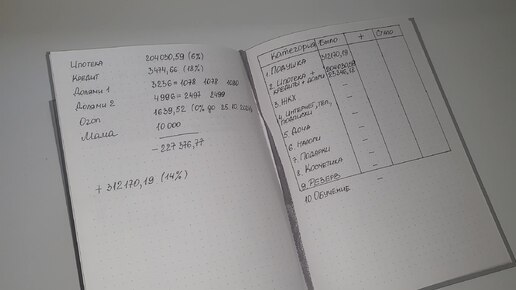 Ипотека 204030,59 (6%)
Кредит 3474,66 (18%)
Долами 1 3236 = 1078 1078 1080
Долами 2 4996 = 2497 2499
Ozon 1639,52 (0% до 25.10
Мама 10 000
-227 376,77
+ 312170,19 (14%)
Категория Было + Стало
1. Подушка 312170,19
2. Ипотека + 204030,59
кредиты + долги 23 346,18
3. ЖКХ –
4. Интернет, тел,
подписки –
5. Дочь –
6. Налоги –
7. Подарки –
8. Косметика –
9. Резерв –
10 Обучение –